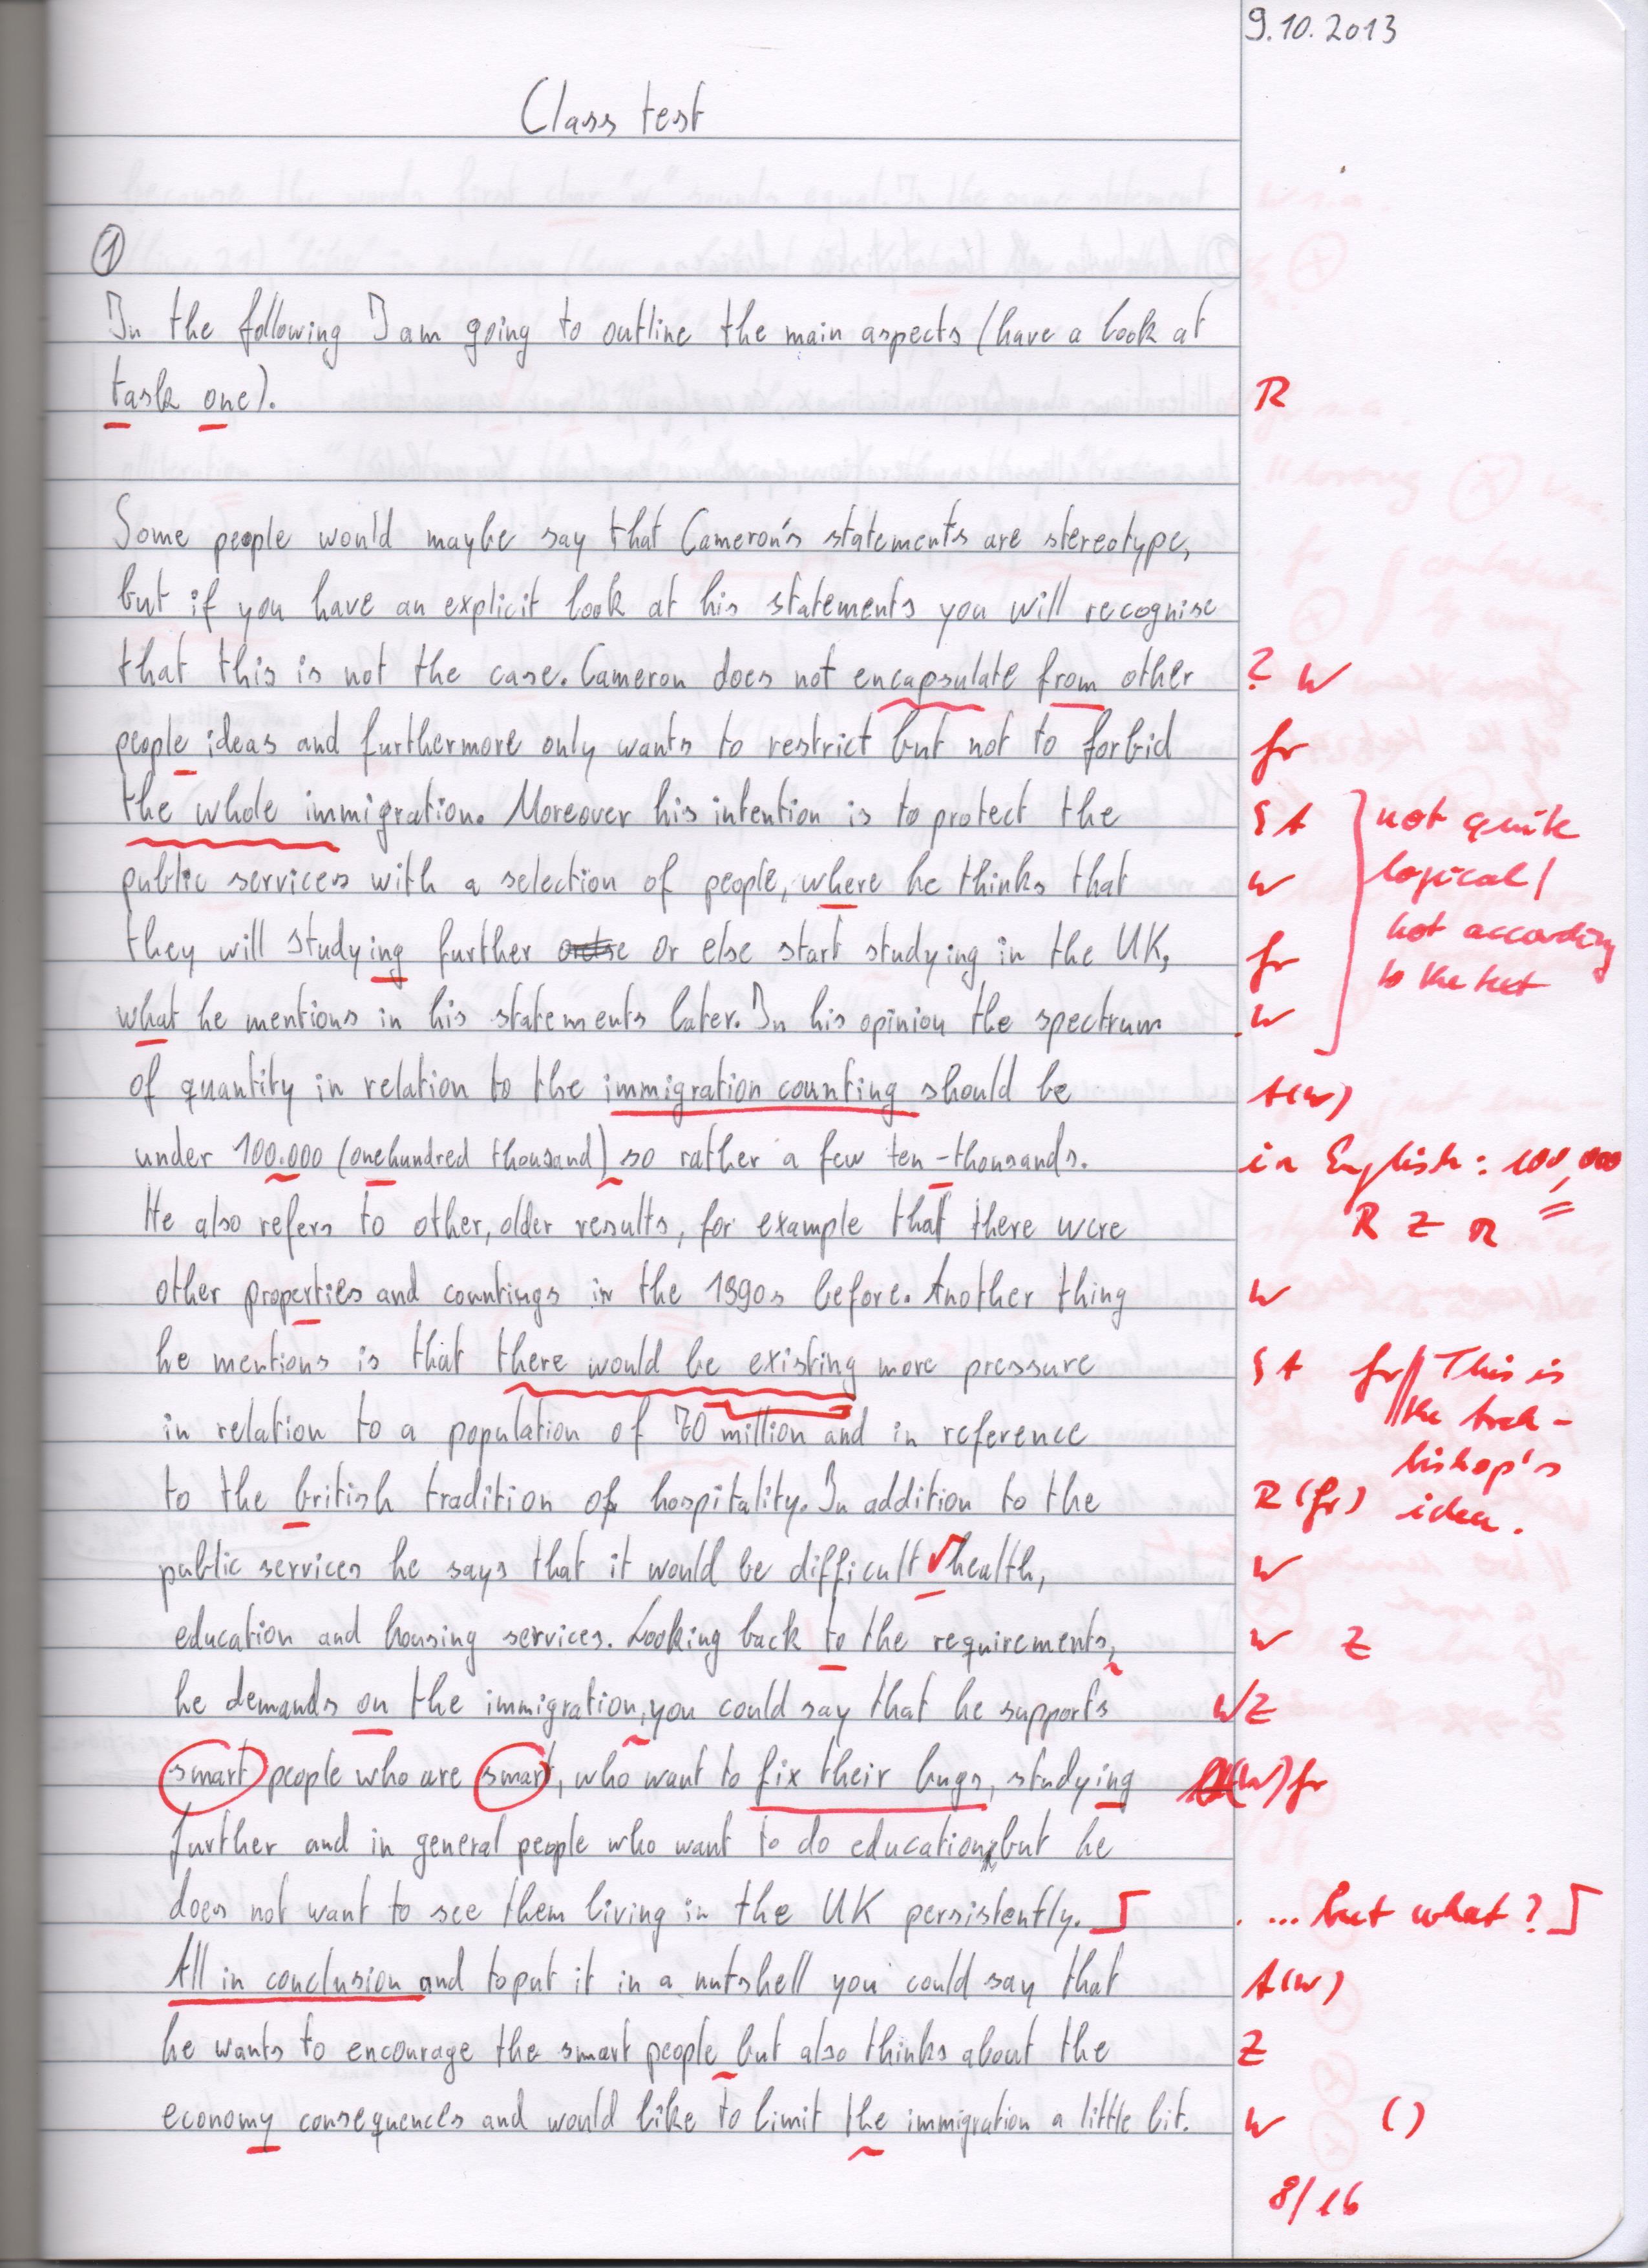 9.10.2013
Class test
①
In the following I am going to outline the main aspects (have a look at
task one). R
Some people would maybe say that Cameron's statements are stereotype,
but if you have an explicit look at his statements you will recognise
that this is not the case. Cameron does not encapsulate from other ? W
people ideas and furthermore only wants to restrict but not to forbid fr
the whole immigration. Moreover his intention is to protect the SA not quite
public services with a selection of people, where he thinks that W logical/
they will studying further or else start studying in the UK, fr not according
what he mentions in his statements later. In his opinion the spectrum W to the text
of quantity in relation to the immigration counting should be A(W)
under 100.000 (onehundred thousand) so rather a few ten-thousands. in English: 100,000
He also refers to other, older results, for example that there were R Z R
other properties and countings in the 1990s before. Another thing W
he mentions is that there would be existing more pressure SA fr // This is
in relation to a population of 70 million and in reference the Arch-
bishop's
to the british tradition of hospitality. In addition to the R (fr) idea.
public services he says that it would be difficult √ health, W
education and housing services. Looking back to the requirements, W Z
he demands on the immigration, you could say that he supports W Z
smart people who are smart, who want to fix their bugs, studying (W) fr
further and in general people who want to do education, but he
does not want to see them living in the UK persistently. ... but what?
All in conclusion and to put it in a nutshell you could say that A(W)
he wants to encourage the smart people but also thinks about the Z
economy consequences and would like to limit the immigration a little bit. W ( )
8/16